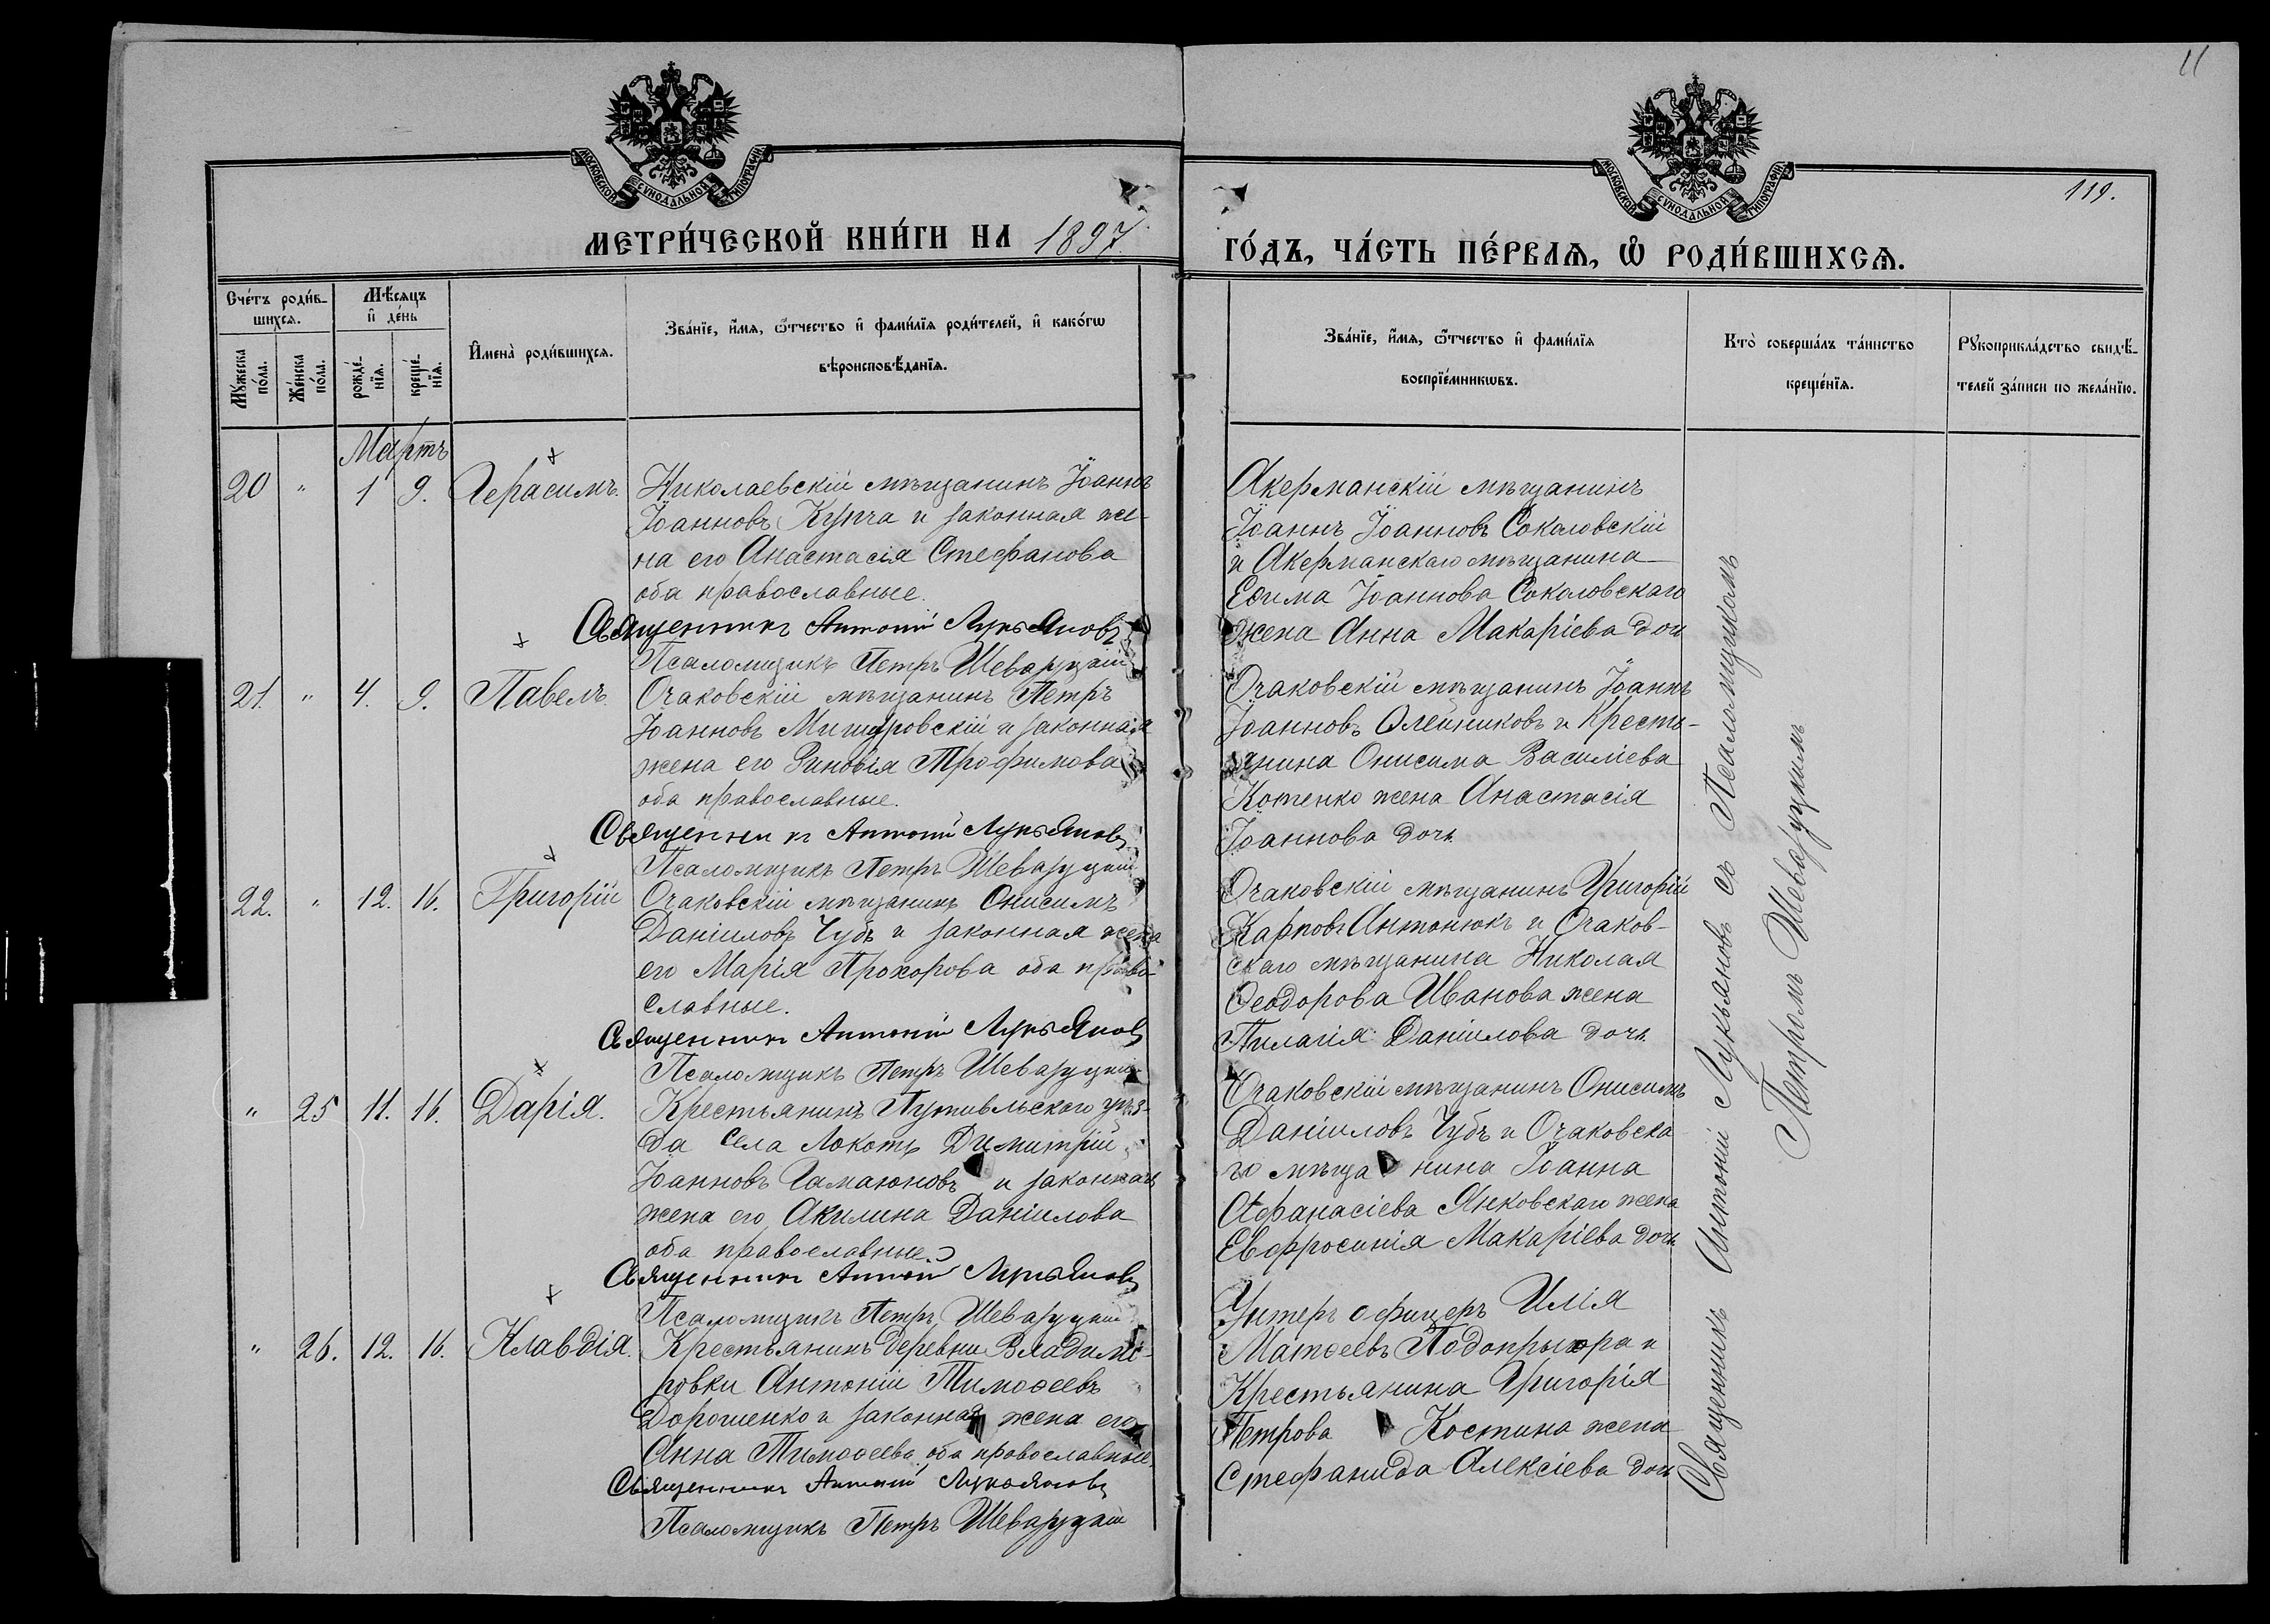 11
МОСКОВСКОЙ СѴНОДАЛЬНОЙ ТИПОГРАФІИ
МОСКОВСКОЙ СѴНОДАЛЬНОЙ ТИПОГРАФІИ
119.
МЕТРИ́ЧЕСКОЙ КНИ́ГИ НА 1897
ГО́ДЪ, ЧА́СТЬ ПЕ́РВАѦ, Ѡ҆ РОДИ́ВШИХСѦ.
Сче́тъ роди́в-
шихсѧ.
Мѣ́сѧцъ
и҆ де́нь
Мꙋ́жеска по́ла.
Же́нска по́ла.
рожде́-
нїѧ.
креще́-
нїѧ.
И҆мена̀ роди́вшихсѧ.
Зва́нїе, и҆́мѧ, ѻ҆́тчество и҆ фами́лїѧ роди́телей, и҆ како́гѡ
вѣроисповѣ́данїѧ.
Зва́нїе, и҆́мѧ, ѻ҆́тчество и҆ фами́лїѧ
воспрїе́мникѡвъ.
Кто̀ соверша́лъ та́инство
креще́нїѧ.
Рꙋкоприкла́дство свидѣ́-
телей за́писи по жела́нїю.
Мартъ
20 " 1 9. Герасимъ.
Николаевскій мѣщанинъ Іоаннъ
Іоанновъ Купча и законная же-
на его Анастасія Стефанова
оба православные.
Священникъ Антоній Лукьяновъ
Псаломщикъ Петръ Шеваруцкій
Акерманскій мѣщанинъ
Іоаннъ Іоанновъ Соколовскій
и Акерманскаго мѣщанина
Еѳима Іоаннова Соколовскаго
жена Анна Макаріева доч
21. " 4. 9. Павелъ.
Очаковскій мѣщанинъ Петръ
Іоанновъ и законная
жена его Зиновія Трофимова
оба православные.
Священникъ Антоній Лукьяновъ
Псаломщикъ Петръ Шеваруцкій
Очаковскій мѣщанинъ Іоаннъ
Іоанновъ Олейниковъ и Кресть-
янина Онисима Василіева
Котенко жена Анастасія
Іоаннова дочь
22. " 12. 16. Григорій
Очаковскій мѣщанинъ Онисимъ
Даніиловъ Чубъ и законная жена
его Марія Прохорова оба право-
славные.
Священникъ Антоній Лукьяновъ
Псаломщикъ Петръ Шеваруцкій
Очаковскій мѣщанинъ Григорій
Карповъ Антонюкъ и Очаков-
скаго мѣщанина Николая
Ѳеодорова Иванова жена
Пилагія Даніилова дочь
" 25 11. 16. Дарія.
Крестьянинъ Путивльскаго уѣз-
да села Локоть Димитрій
Іоанновъ Гамаюновъ и законная
жена его Акилина Даніилова
оба православные.
Священникъ Антоній Лукьяновъ
Псаломщикъ Петръ Шеваруцкій
Очаковскій мѣщанинъ Онисимъ
Даніиловъ Чубъ и Очаковска-
го мѣщанина Іоанна
Афанасіева Янковскаго жена
Евфросинія Макаріева дочь
" 26. 12. 16. Клавдія.
Крестьянинъ деревни Владими-
ровки Антоній Тимоѳеевъ
Дорошенко и законная жена его
Анна Тимоѳеева оба православные.
Священникъ Антоній Лукьяновъ
Псаломщикъ Петръ Шеваруцкій
Унтеръ офицеръ Илія
Матѳеевъ Подопрыгора и
Крестьянина Григорія
Петрова Костина жена
Стефанида Алексіева доч
Священникъ Антоній Лукьяновъ съ Псаломщикомъ
Петромъ Шеваруцкимъ